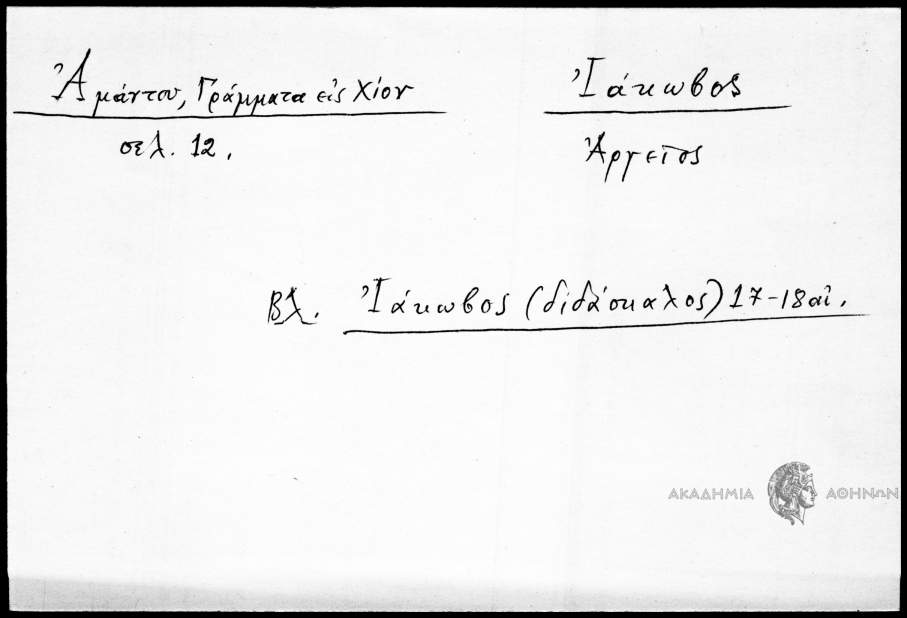 Ἀμάντου, Γράμματα εἰς Χίον
σελ. 12.
Ἰάκωβος
Ἀργεῖος
Βλ. Ἰάκωβος (διδάσκαλος) 17-18 αἰ.
ΑΚΑΔΗΜΙΑ ΑΘΗΝΩΝ